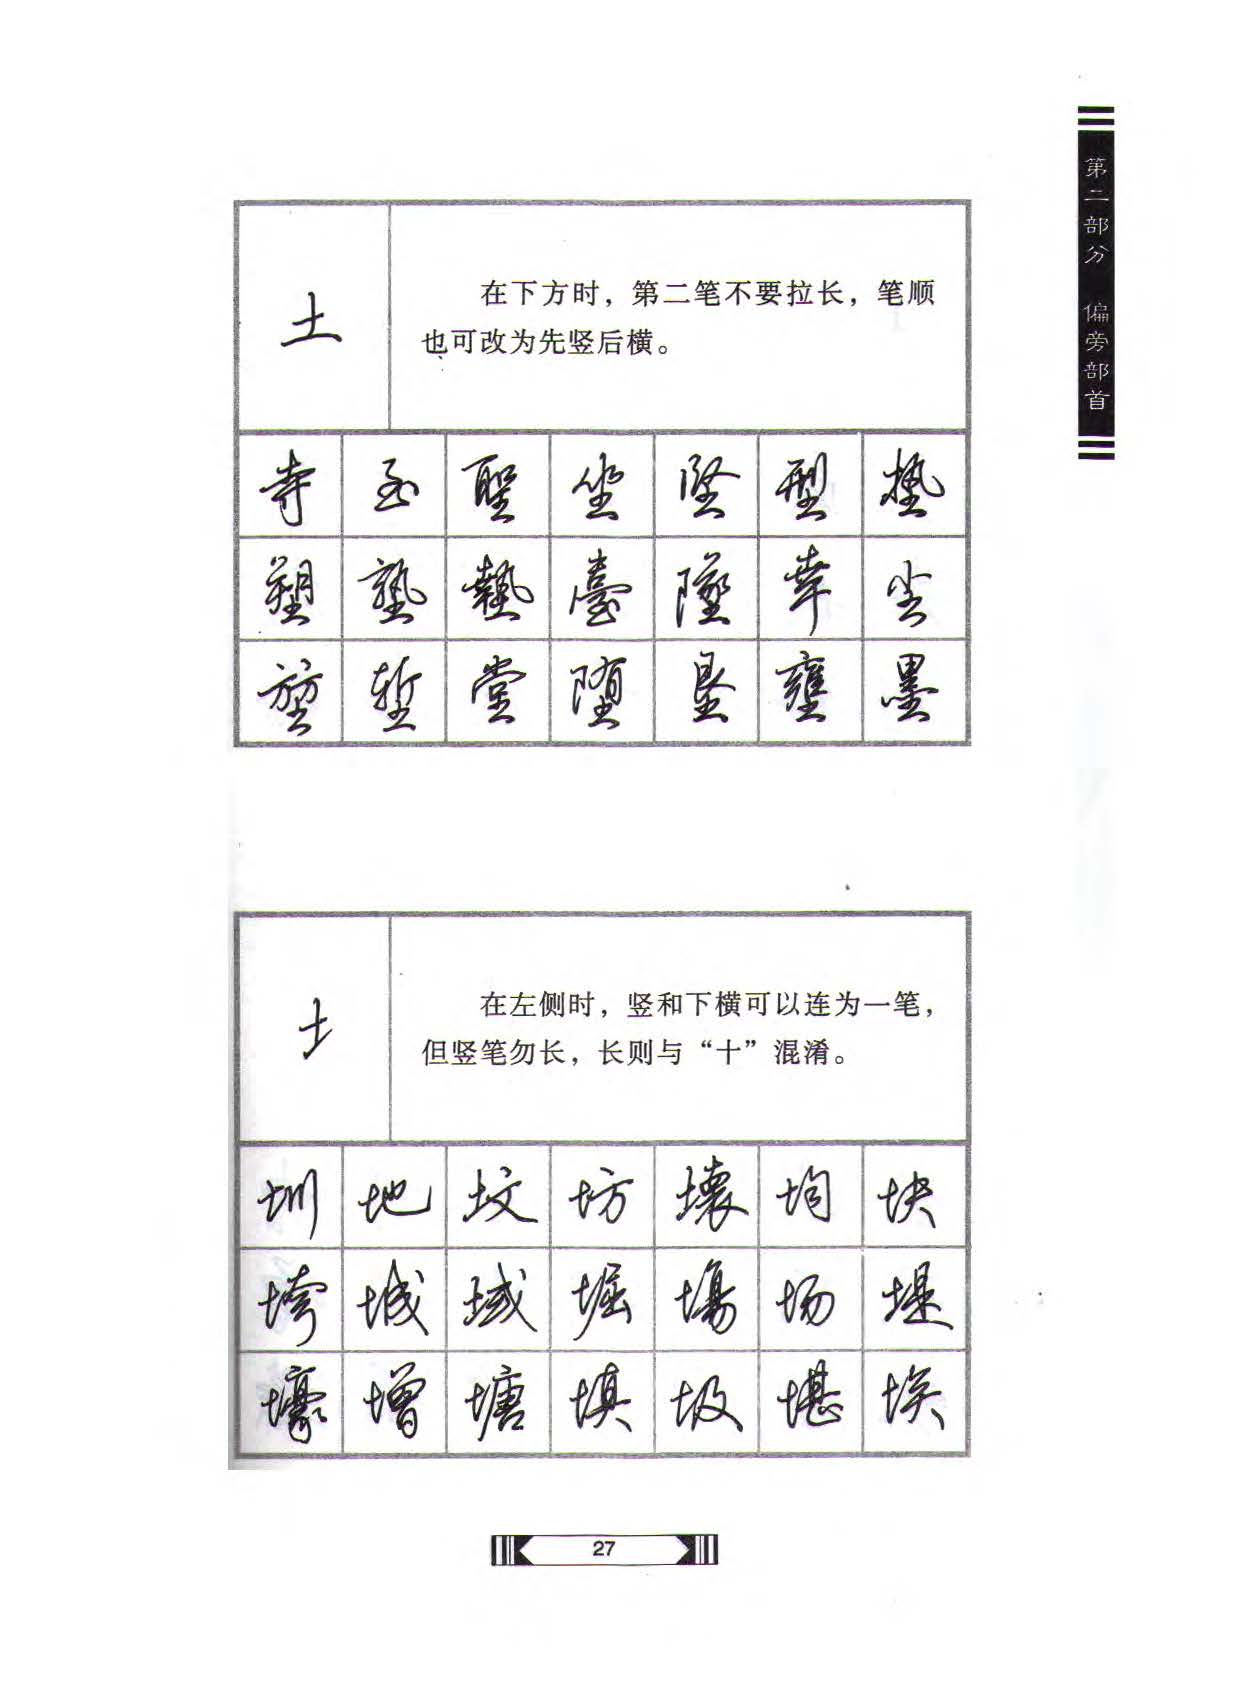 第二部分 偏旁部首
土
在下方时，第二笔不要拉长，笔顺
也可改为先竖后横。
寺 至 聖 坐 坚 型 垫
塑 塾 執 臺 墜 幸 尘
堃 堑 堂 堕 垦 壅 墨
土
在左侧时，竖和下横可以连为一笔，
但竖笔勿长，长则与“十”混淆。
圳 地 坟 坊 壞 均 块
垮 城 域 堀 塲 场 堤
壕 增 塘 填 圾 堪 埃
27